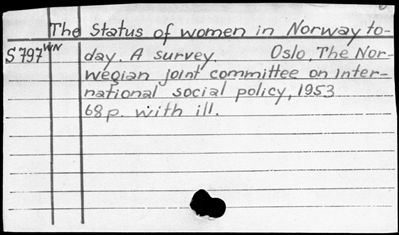 The Status of women in Norway to-
S797 WN day. A survey. Oslo, The Nor-
wegian joint committee on inter-
national social policy, 1953
68 p. with ill.